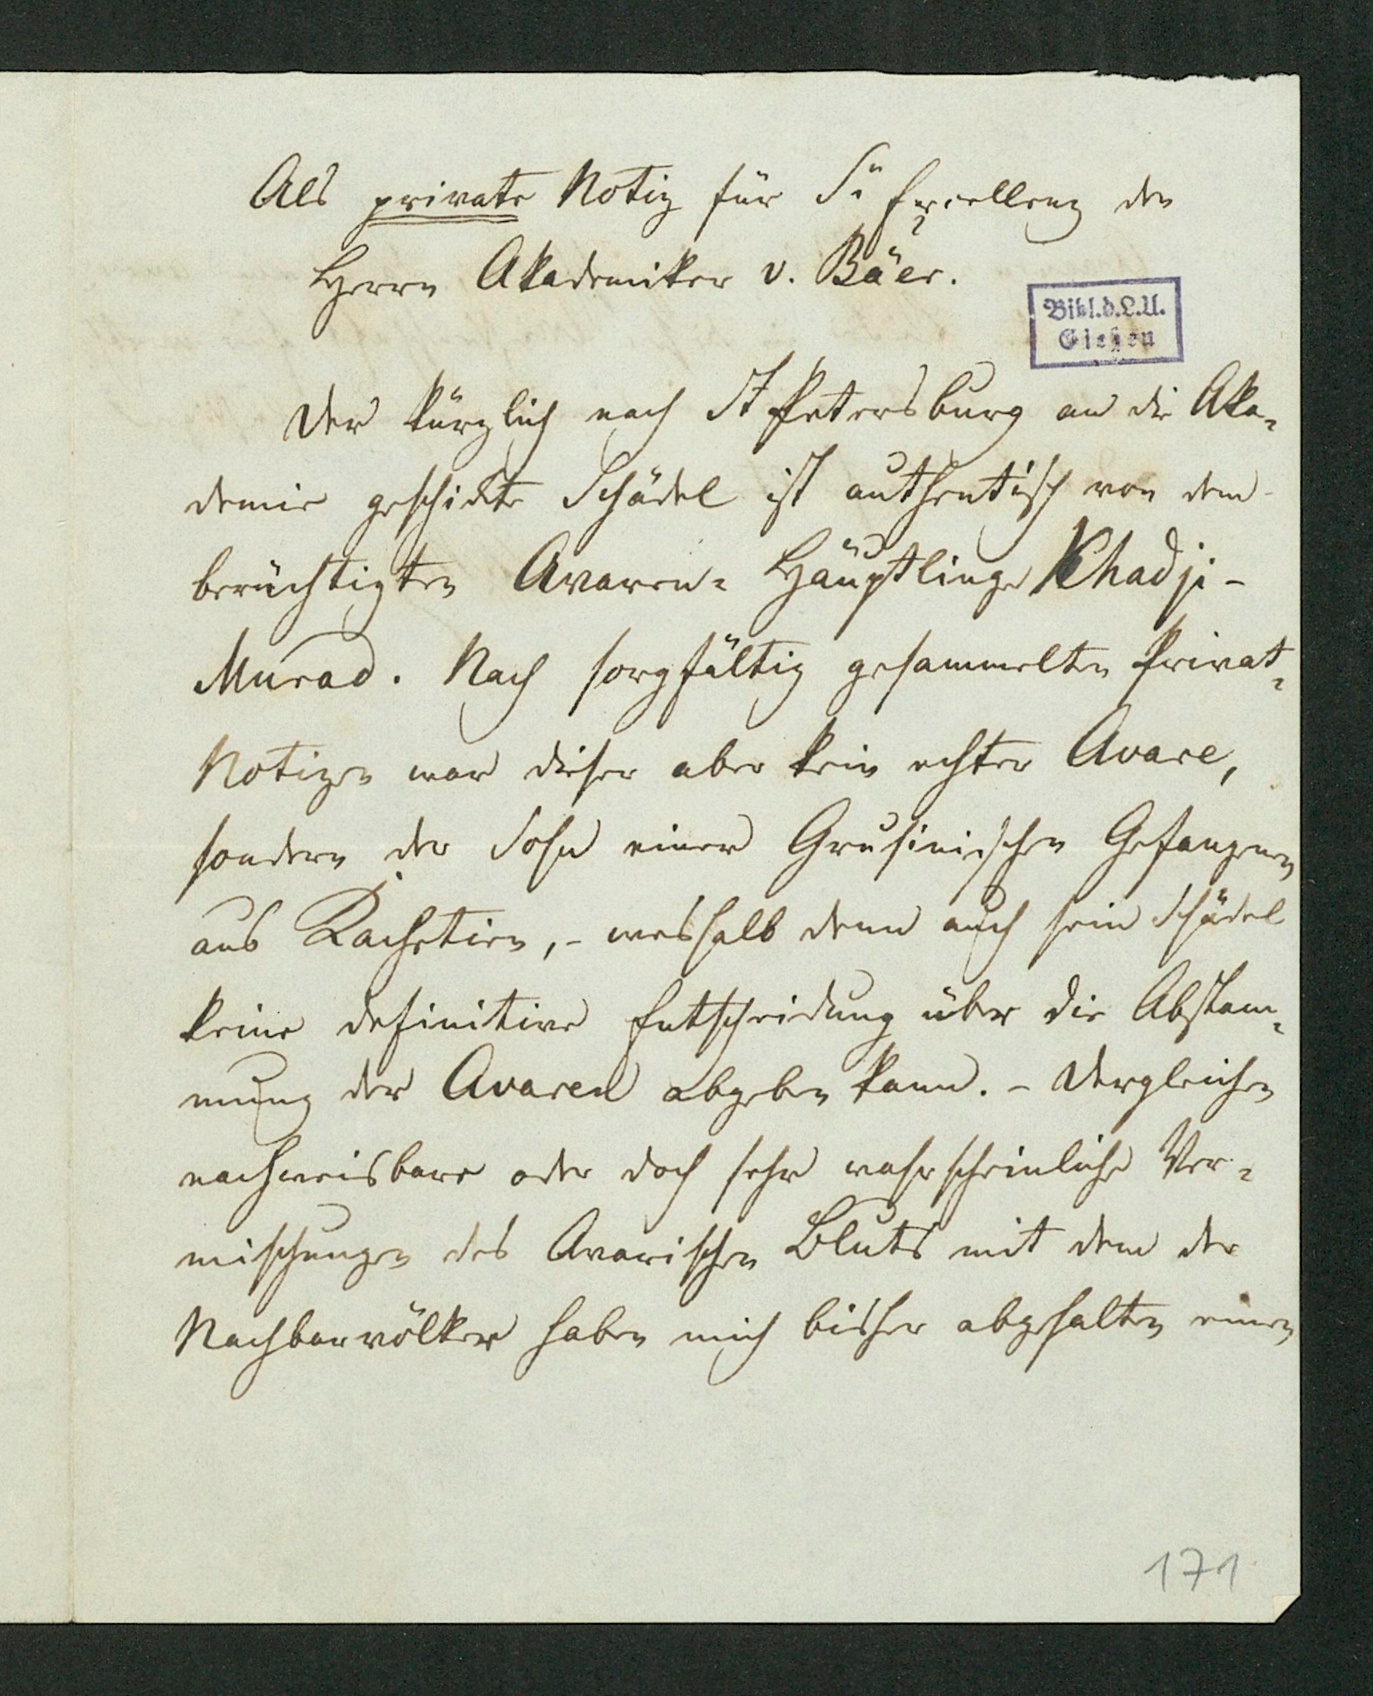 Als private Notiz für Sr Excellenz den
Herrn Akademiker v. Bäer.
Bibl.d.L.U.
Gießen
Der kürzlich nach St Petersburg an die Aka-
demie geschickte Schädel ist authentisch von dem
berüchtigten Avaren-Häuptlinge Khadji-
Murad. Nach sorgfältig gesammelten Privat-
Notizen war dieser aber kein echter Avare,
sondern der Sohn einer Grusinischen Gefangenen
aus Kachetien, - weshalb denn auch sein Schädel
keine definitive Entscheidung über die Abstam-
mung der Avaren abgeben kann. - Dergleichen
nachweisbare oder doch sehr wahrscheinliche Ver-
mischungen des Avarischen Bluts mit dem der
Nachbarvölker haben mich bisher abgehalten einen
171